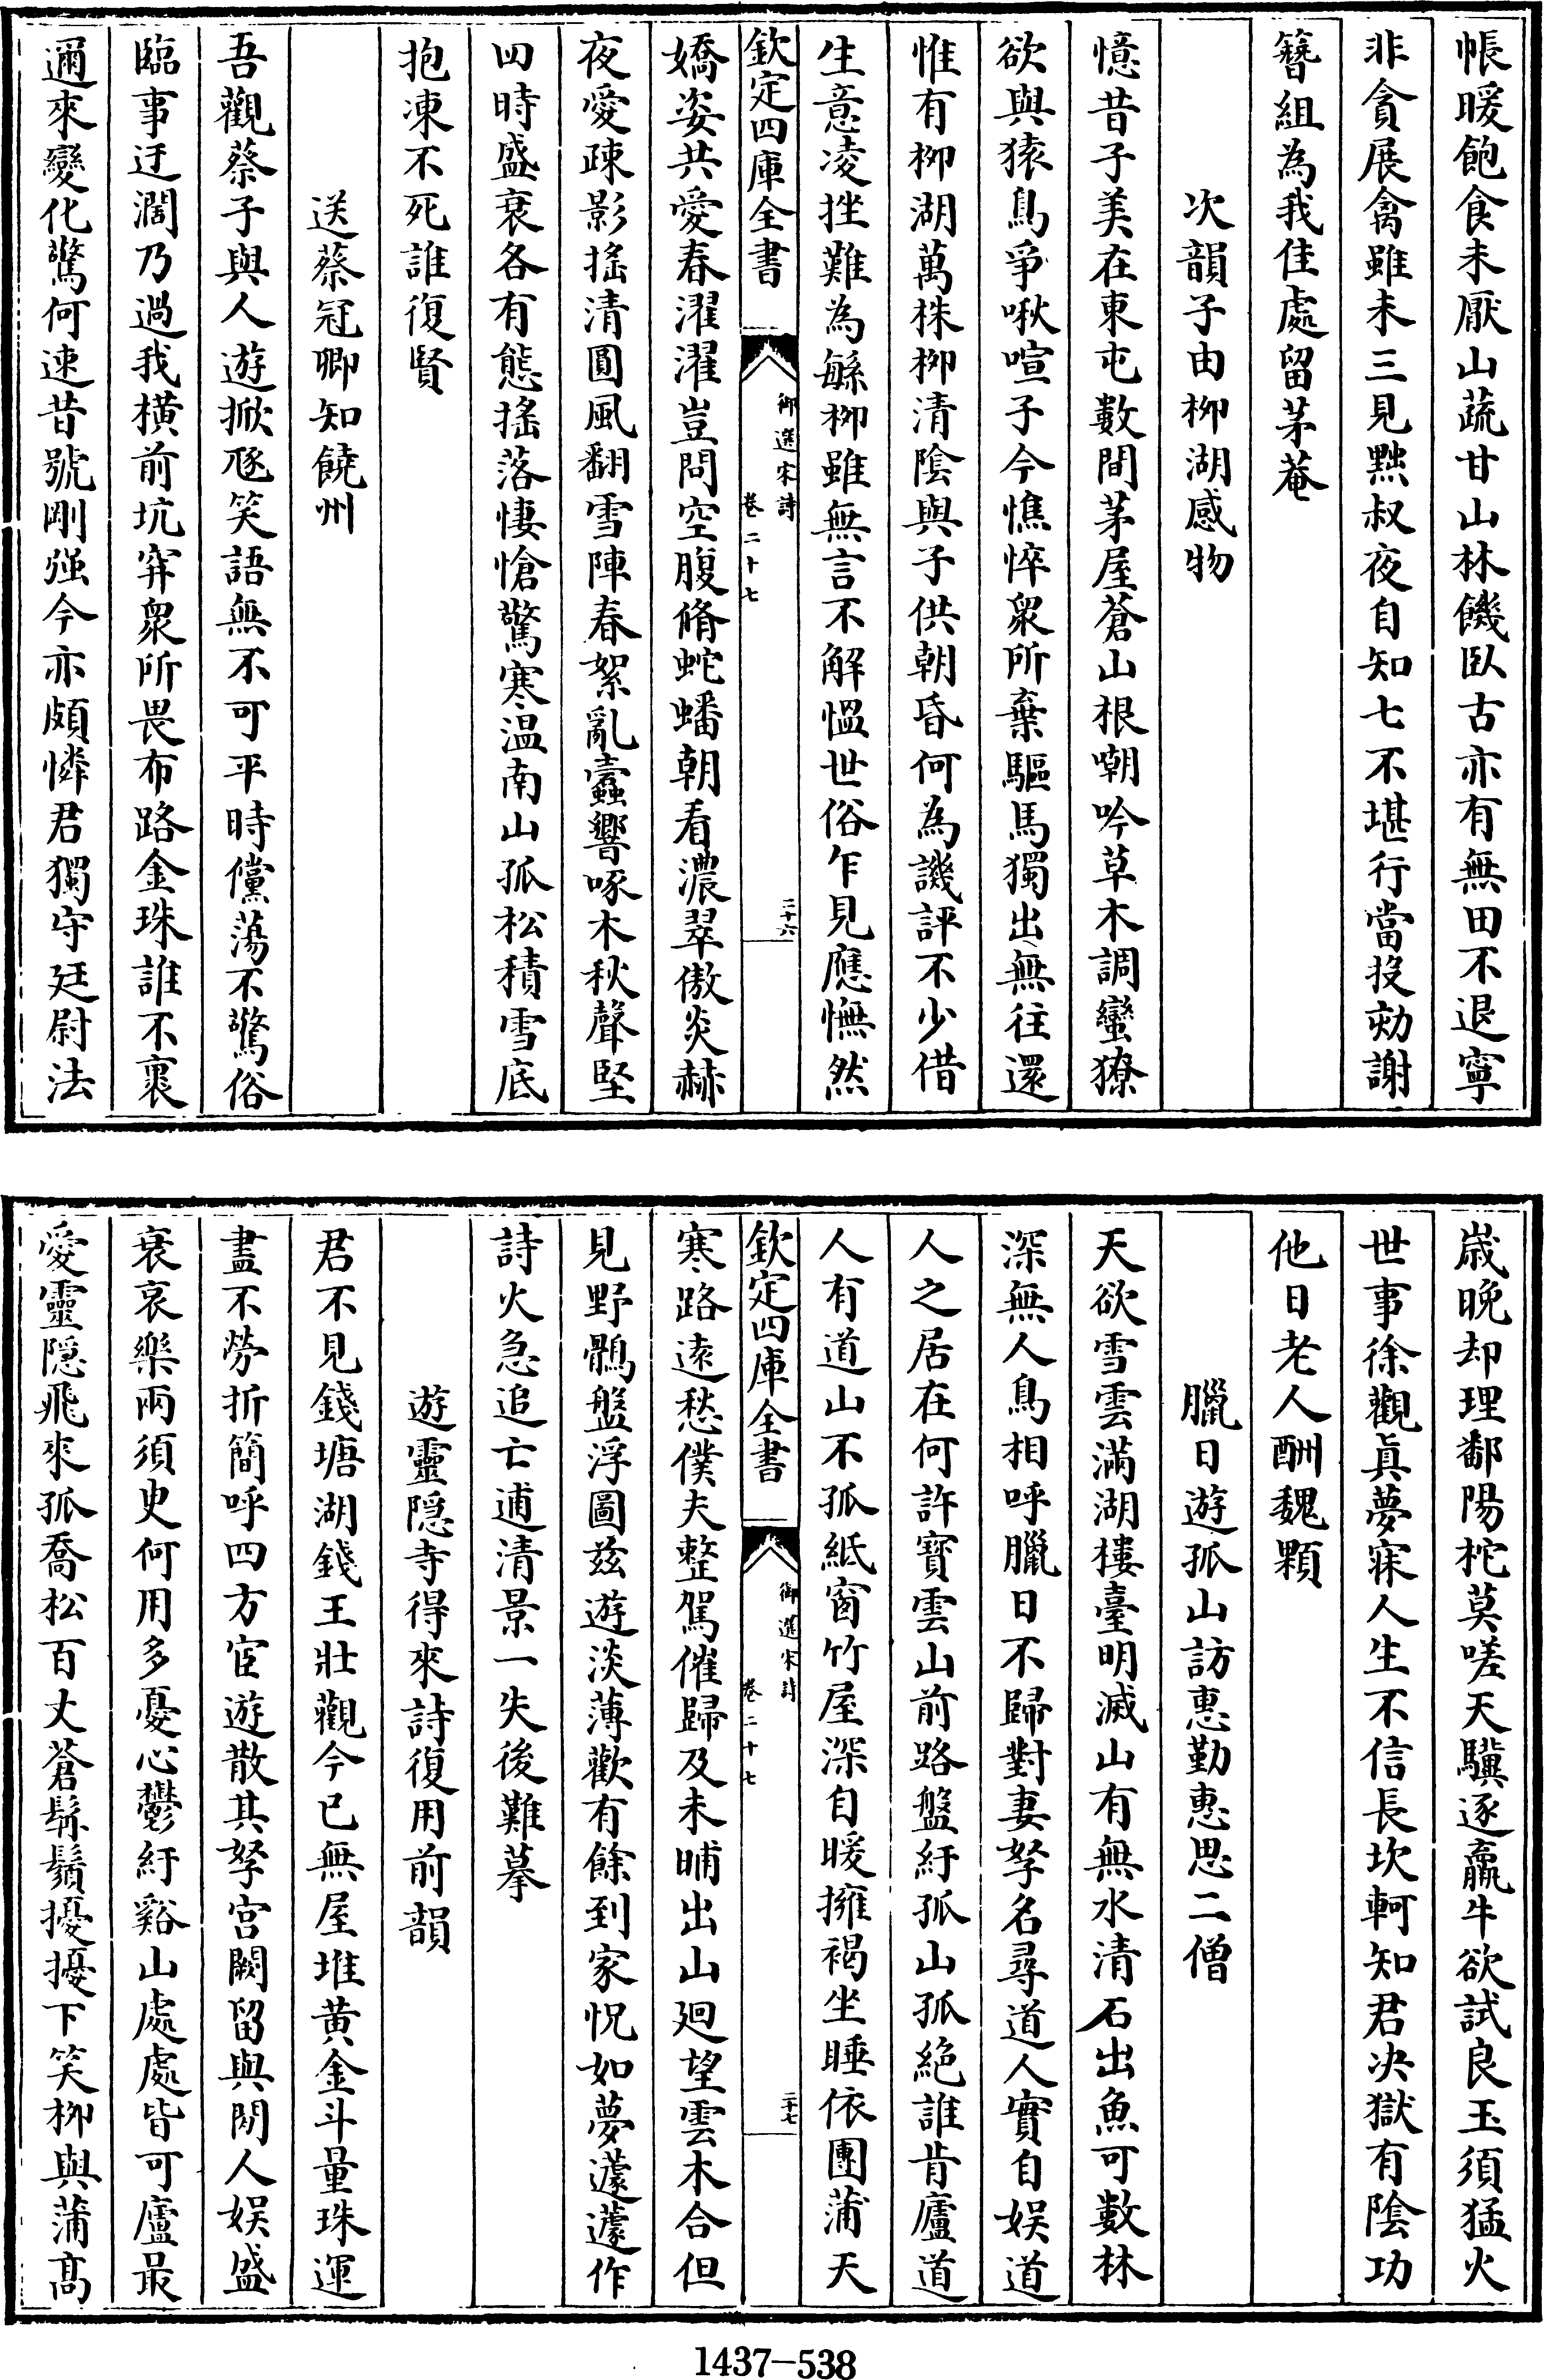 帳暖飽食未厭山蔬甘山林饑臥古亦有無田不退寧
非貪展禽雖未三見黜叔夜自知七不堪行當投劾謝
簪組為我佳處留茅菴
次韻子由柳湖感物
憶昔子美在東屯數間茅屋蒼山根嘲吟草木調蠻獠
欲與猿鳥爭啾喧子今憔悴衆所棄驅馬獨出無往還
惟有柳湖萬株柳清陰與子供朝昏何為譏評不少借
生意凌挫難為繁柳雖無言不解慍世俗乍見應憮然
欽定四庫全書
御選宋詩
卷二十七
二十六
嬌姿共愛春濯濯豈問空腹脩蛇蟠朝看濃翠傲炎赫
夜愛疎影搖清圓風翻雪陣春絮亂蠹響啄木秋聲堅
四時盛衰各有態搖落悽愴驚寒温南山孤松積雪底
抱凍不死誰復賢
送蔡冠卿知饒州
吾觀蔡子與人遊掀豗笑語無不可平時儻蕩不驚俗
臨事迂濶乃過我橫前坑穽衆所畏布路金珠誰不裹
邇來變化驚何速昔號剛强今亦頗憐君獨守廷尉法
歲晚却理鄱陽柁莫嗟天驥逐羸牛欲試良玉須猛火
世事徐觀眞夢寐人生不信長坎軻知君决獄有陰功
他日老人酬魏顆
臘日遊孤山訪惠勤惠思二僧
天欲雪雲滿湖樓臺明滅山有無水清石出魚可數林
深無人鳥相呼臘日不歸對妻孥名尋道人實自娛道
人之居在何許寶雲山前路盤紆孤山孤絶誰肯廬道
人有道山不孤紙窗竹屋深自暖擁褐坐睡依團蒲天
欽定四庫全書
御選宋詩
卷二十七
二十七
寒路遠愁僕夫整駕催歸及未晡出山廻望雲木合但
見野鶻盤浮圖兹遊淡薄歡有餘到家怳如夢蘧蘧作
詩火急追亡逋清景一失後難摹
遊靈隠寺得來詩復用前韻
君不見錢塘湖錢王壯觀今已無屋堆黄金斗量珠運
盡不勞折簡呼四方宦遊散其孥宫闕留與閒人娛盛
衰哀樂兩須臾何用多憂心鬱紆谿山處處皆可廬最
愛靈隠飛來孤喬松百丈蒼髯鬚擾擾下笑柳與蒲高
1437—538